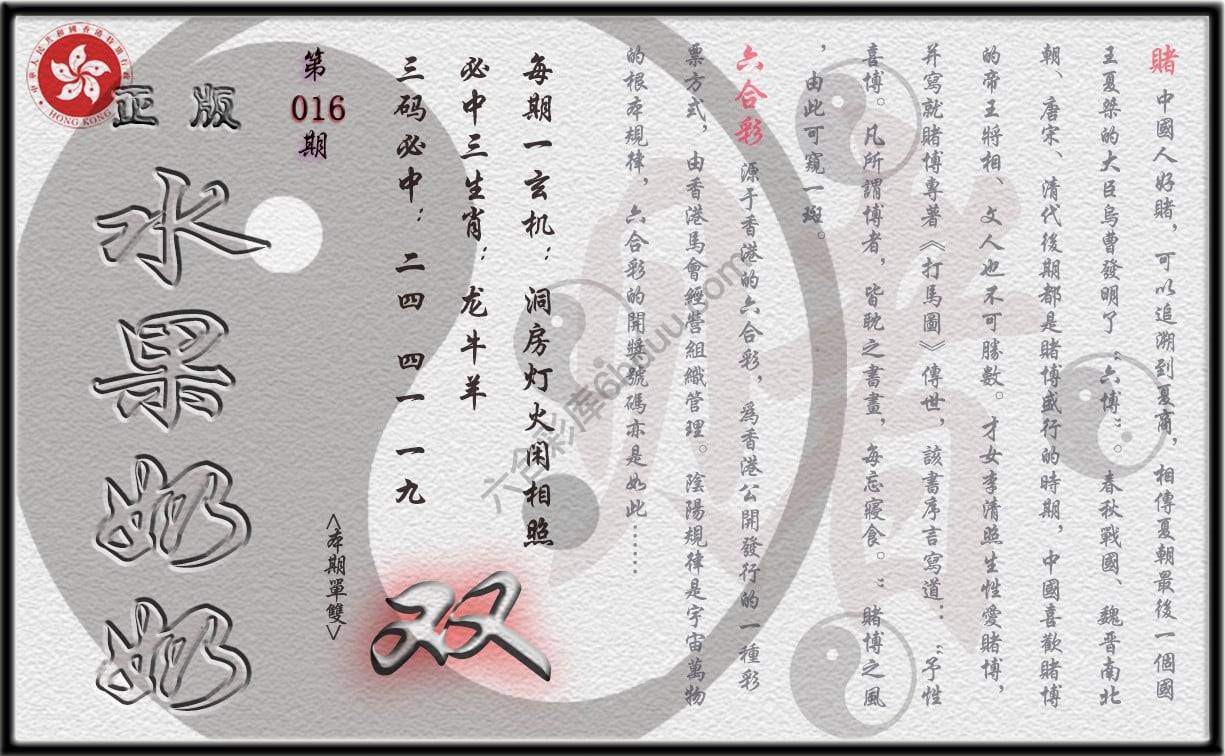 賭 中國人好賭，可以追溯到夏商，相傳夏朝最後一個國
王夏桀的大臣烏曹發明了“六博”。春秋戰國、魏晉南北
朝、唐宋、清代後期都是賭博盛行的時期，中國喜歡賭博
的帝王將相、文人也不可勝數。才女李清照生性愛賭博，
并寫就賭博專著《打馬圖》傳世，該書序言寫道：“予性
喜博。凡所謂博者，皆耽之晝，每忘寢食。”賭博之風
，由此可窺一斑。
六合彩 源于香港的六合彩，爲香港公開發行的一種彩
票方式，由香港馬會經營組織管理。陰陽規律是宇宙萬物
的根本規律，六合彩的開獎號碼亦是如此……
每期一玄机：洞房灯火闲相照
必中三生肖：龙牛羊
三码必中：二四 四一 一九
第
016
期
<本期單雙>
双
正版
水果奶奶
HONG KONG
六合彩库6hduu.com